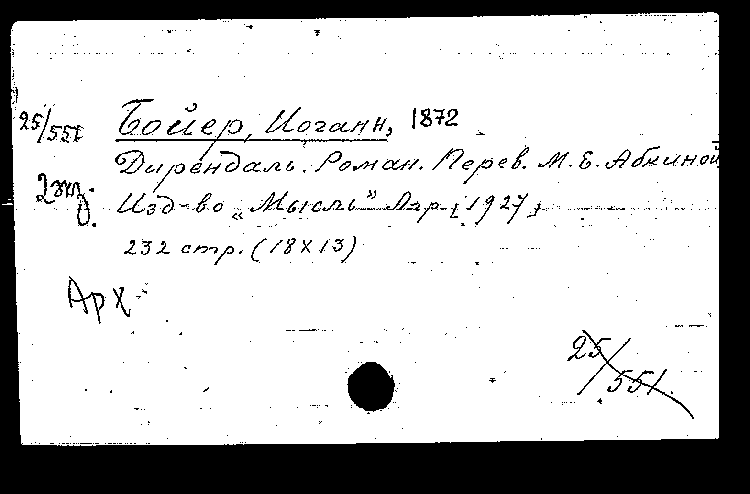 25/551 Бойер, Иоганн, 1872
Дирендаль. Роман. Перев. М. Е. Абкиной
2 экз. Изд-во „Мысль” Лгр. [1927]
232 стр. (18X13)
Арх
25/551.